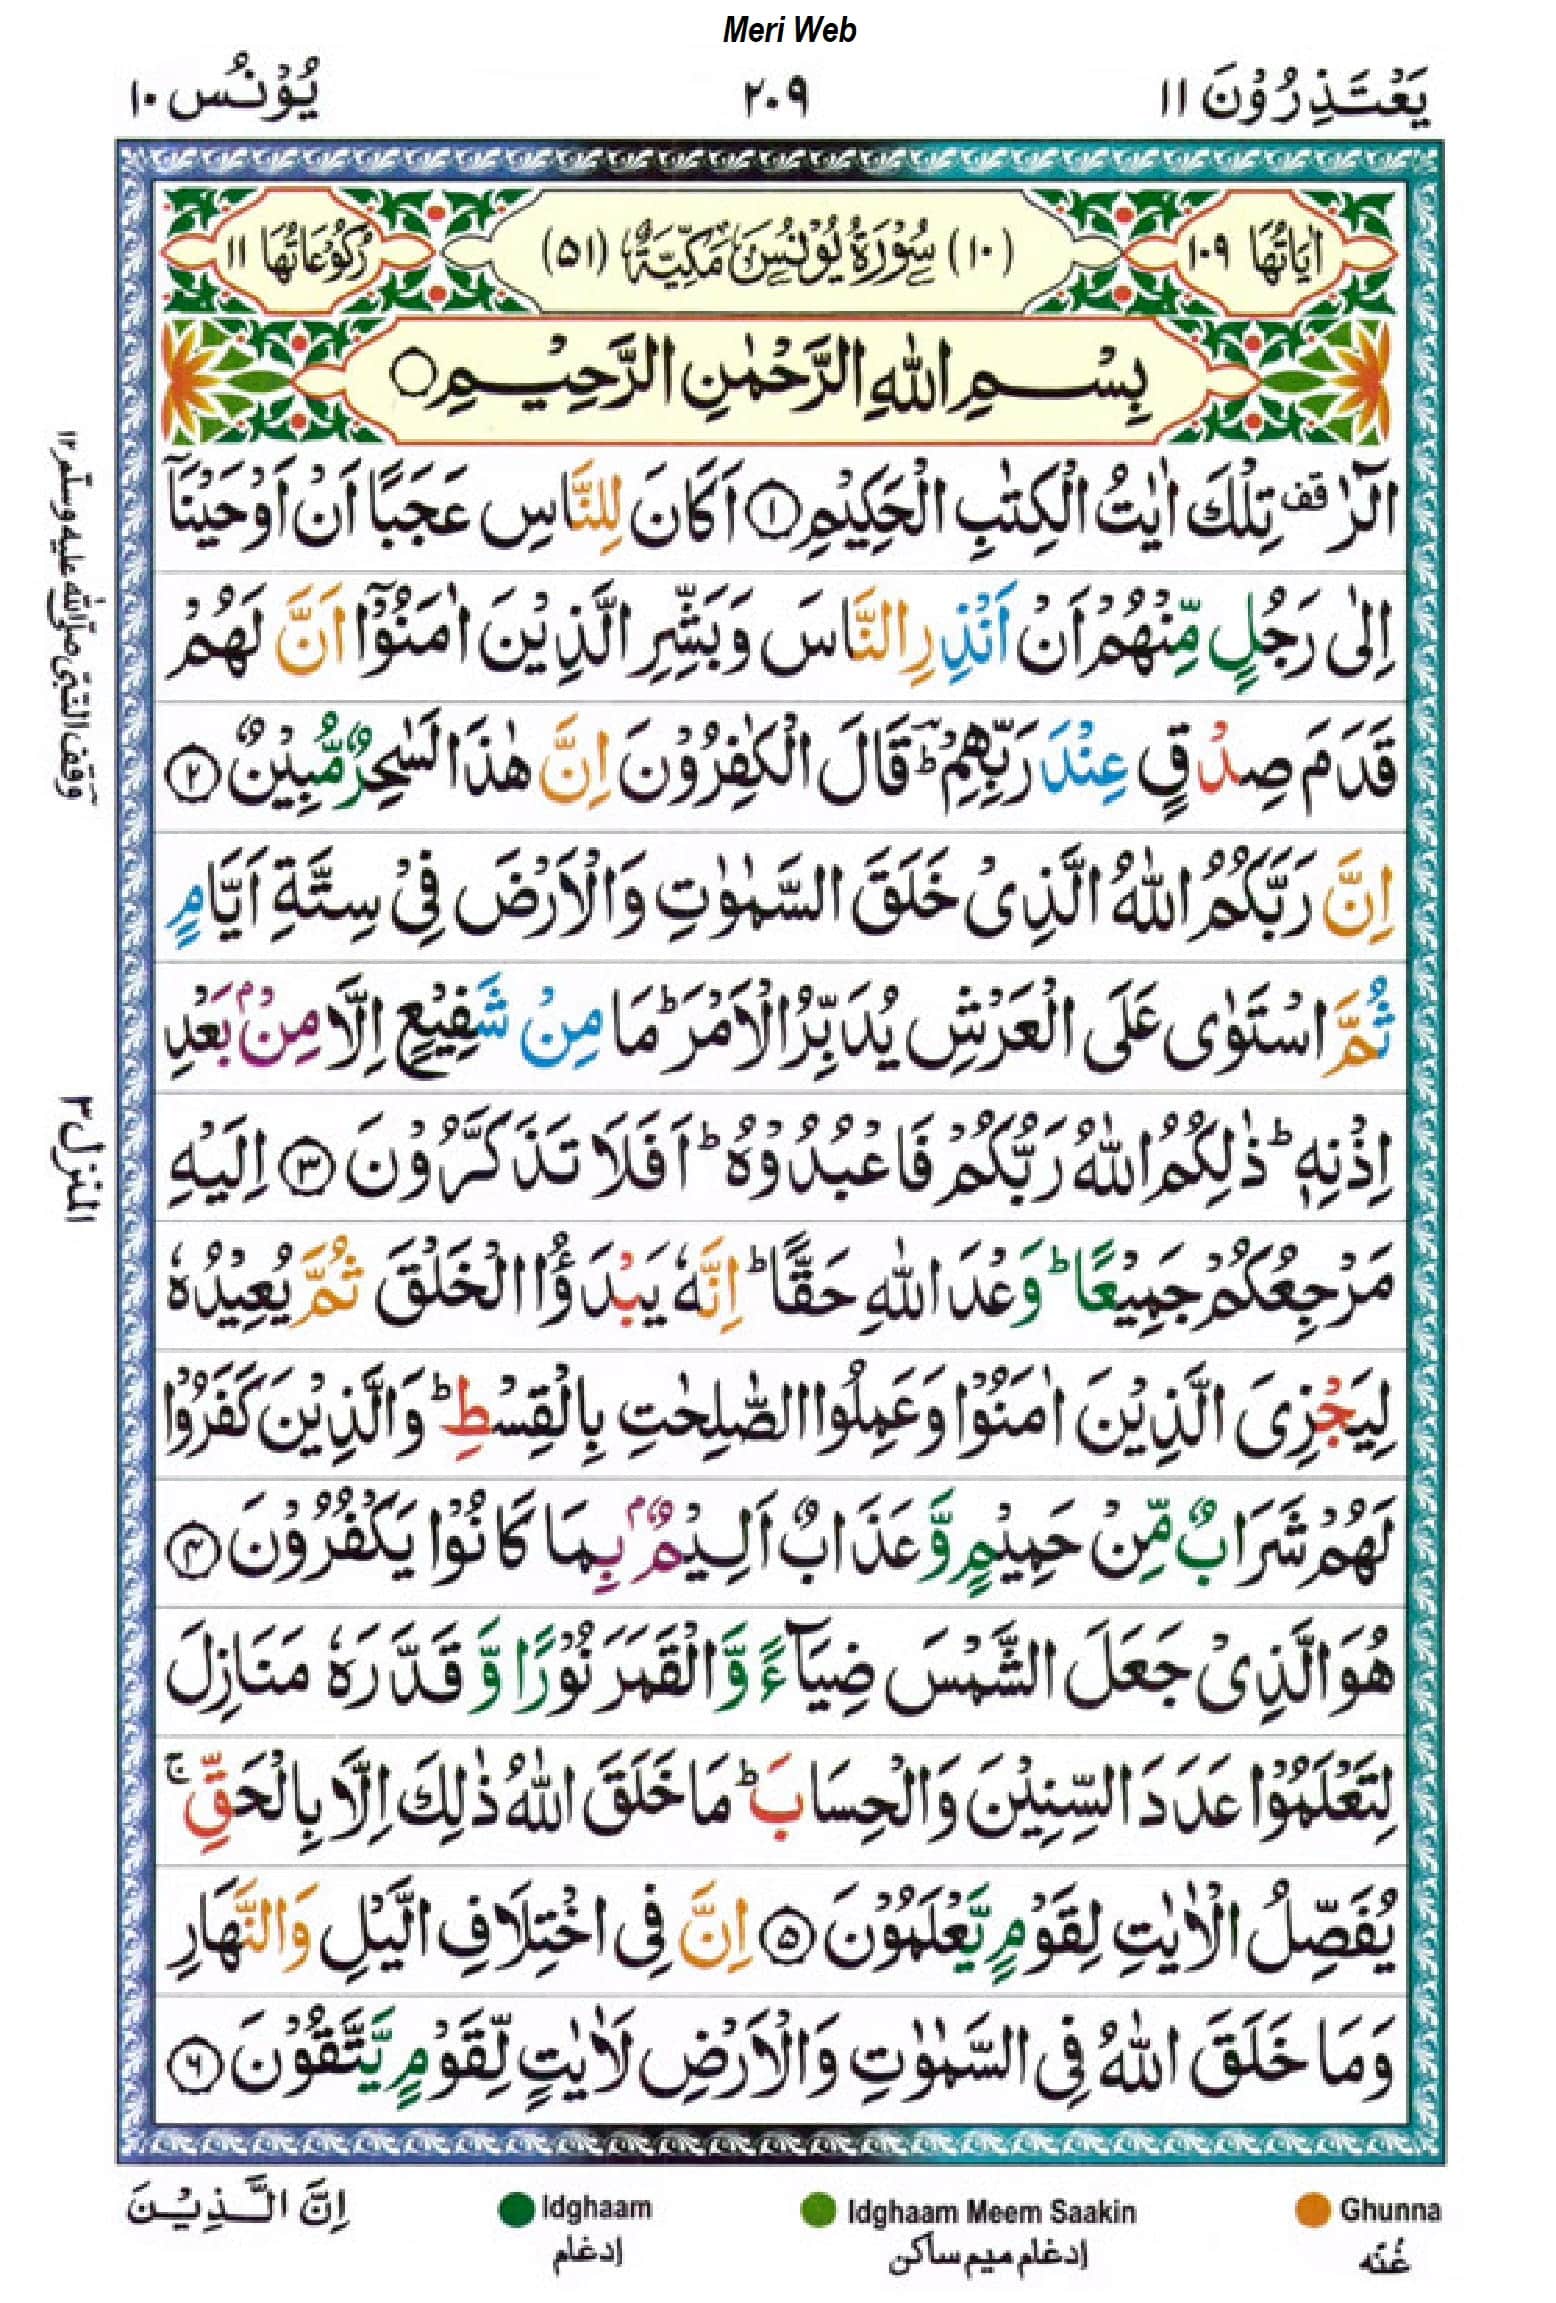 Meri Web
يَعْتَذِرُوْنَ ١١
٢٠٩
يُوْنُس ١٠
اٰيَاتُهَا ١٠٩
(١٠) سُوْرَةُ يُوْنُسَ مَكِّيَّةٌ (٥١)
رُكُوْعَاتُهَا ١١
بِسْمِ اللّٰهِ الرَّحْمٰنِ الرَّحِيْمِ ○
الٓرٰ ࣞقف تِلْكَ اٰيٰتُ الْكِتٰبِ الْحَكِيْمِ ① اَكَانَ لِلنَّاسِ عَجَبًا اَنْ اَوْحَيْنَاۤ
اِلٰى رَجُلٍ مِّنْهُمْ اَنْ اَنْذِرِ النَّاسَ وَبَشِّرِ الَّذِيْنَ اٰمَنُوْۤا اَنَّ لَهُمْ
قَدَمَ صِدْقٍ عِنْدَ رَبِّهِمْ ؕ قَالَ الْكٰفِرُوْنَ اِنَّ هٰذَا لَسٰحِرٌ مُّبِيْنٌ ②
اِنَّ رَبَّكُمُ اللّٰهُ الَّذِىْ خَلَقَ السَّمٰوٰتِ وَالْاَرْضَ فِىْ سِتَّةِ اَيَّامٍ
ثُمَّ اسْتَوٰى عَلَى الْعَرْشِ يُدَبِّرُ الْاَمْرَ ؕ مَا مِنْ شَفِيْعٍ اِلَّا مِنْۢ بَعْدِ
اِذْنِهٖ ؕ ذٰلِكُمُ اللّٰهُ رَبُّكُمْ فَاعْبُدُوْهُ ؕ اَفَلَا تَذَكَّرُوْنَ ③ اِلَيْهِ
مَرْجِعُكُمْ جَمِيْعًا ؕ وَعْدَ اللّٰهِ حَقًّا ؕ اِنَّهٗ يَبْدَؤُا الْخَلْقَ ثُمَّ يُعِيْدُهٗ
لِيَجْزِىَ الَّذِيْنَ اٰمَنُوْا وَعَمِلُوا الصّٰلِحٰتِ بِالْقِسْطِ ؕ وَالَّذِيْنَ كَفَرُوْا
لَهُمْ شَرَابٌ مِّنْ حَمِيْمٍ وَّعَذَابٌ اَلِيْمٌۢ بِمَا كَانُوْا يَكْفُرُوْنَ ④
هُوَ الَّذِىْ جَعَلَ الشَّمْسَ ضِيَآءً وَّالْقَمَرَ نُوْرًا وَّقَدَّرَهٗ مَنَازِلَ
لِتَعْلَمُوْا عَدَدَ السِّنِيْنَ وَالْحِسَابَ ؕ مَا خَلَقَ اللّٰهُ ذٰلِكَ اِلَّا بِالْحَقِّ ۚ
يُفَصِّلُ الْاٰيٰتِ لِقَوْمٍ يَّعْلَمُوْنَ ⑤ اِنَّ فِى اخْتِلَافِ الَّيْلِ وَالنَّهَارِ
وَمَا خَلَقَ اللّٰهُ فِى السَّمٰوٰتِ وَالْاَرْضِ لَاٰيٰتٍ لِّقَوْمٍ يَّتَّقُوْنَ ⑥
وقف النبى صلى الله عليه وسلم ١٢
المنزل ٣
Ghunna
غُنّه
Idghaam Meem Saakin
إدغام ميم ساكن
Idghaam
إدغام
اِنَّ الَّذِيْنَ